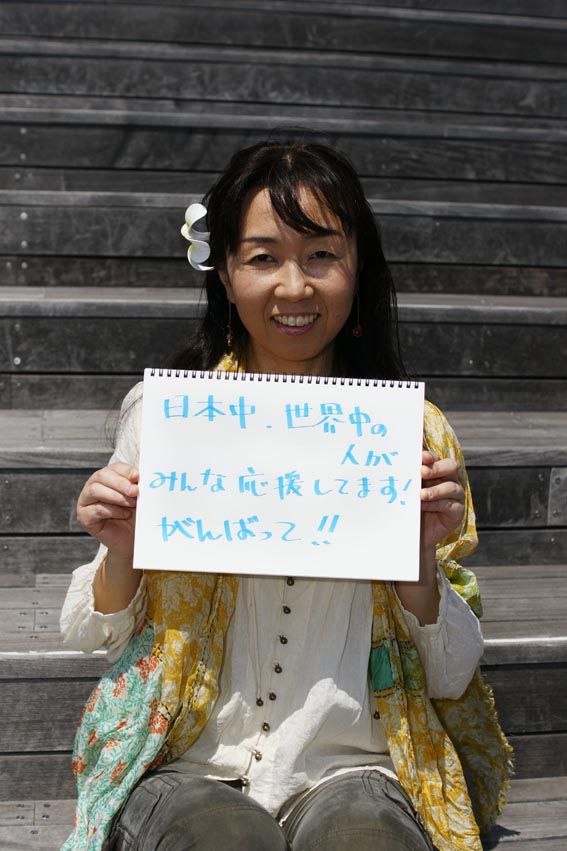 日本中、世界中の
人が
みんな応援してます！
がんばって！！